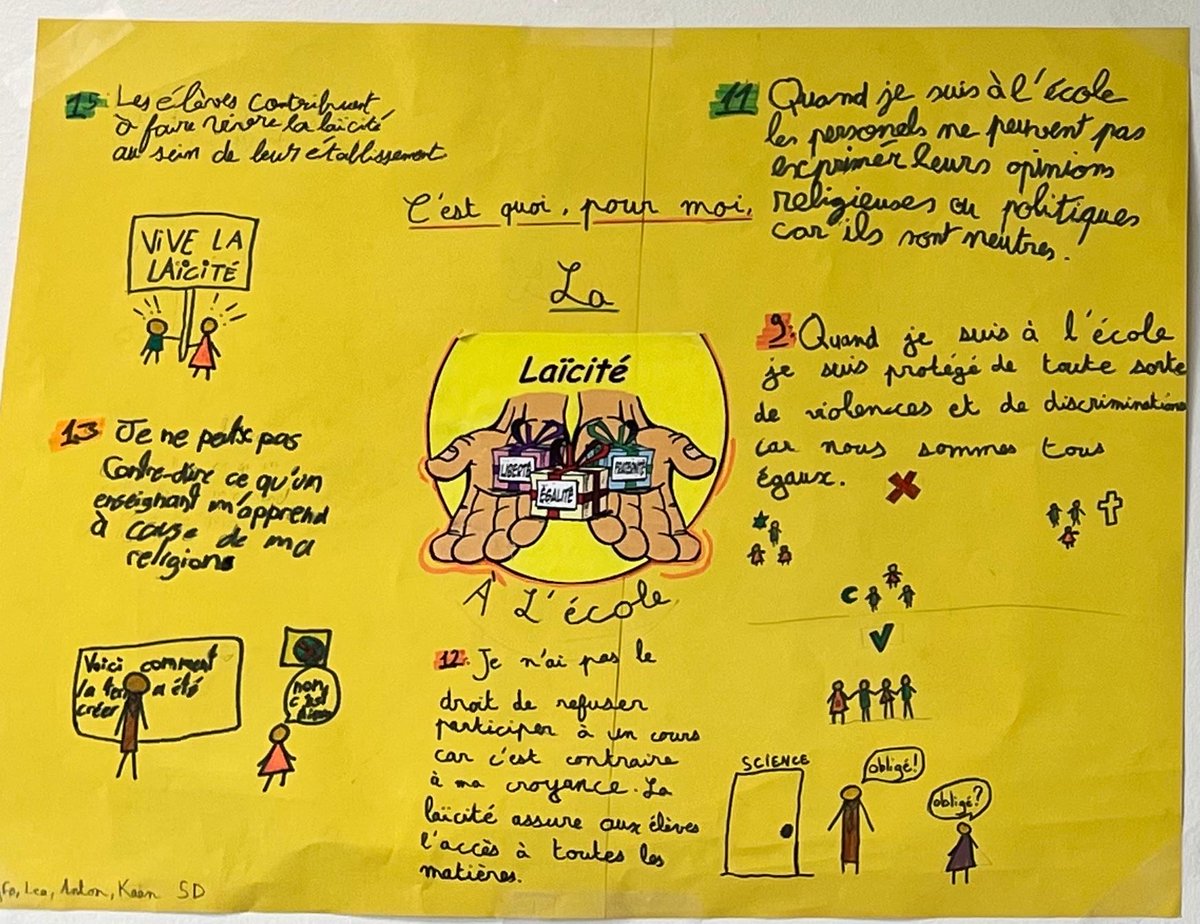 15 Les élèves contribuent
à faire vivre la laïcité
au sein de leur établissement
VIVE LA
LAÏCITÉ
13 Je ne peux pas
Contre-dire ce qu'un
enseignant m'apprend
à cause de ma
religion
Voici comment
la terre a été
créer
non
c'est
C'est quoi, pour moi,
La
Laïcité
LIBERTÉ
ÉGALITÉ
FRATERNITÉ
À L'école
12. Je n'ai pas le
droit de refuser
participer à un cours
car c'est contraire
à ma croyance. La
laïcité assure aux élèves
l'accès à toutes les
matières.
11 Quand je suis à l'école
les personels ne peuvent pas
exprimer leurs opinions
religieuses ou politiques
car ils sont neutres.
9. Quand je suis à l'école
je suis protégé de toute sorte
de violences et de discriminations
car nous sommes tous
égaux.
SCIENCE
obligé!
obligé?
Lea, Anton, Kaan 5D